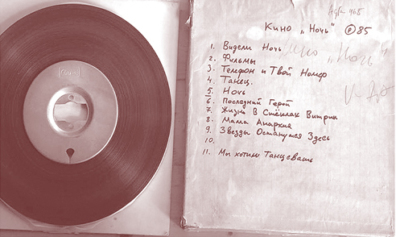 Agfa 468
Кино „Ночь" ℗ 85
1. Видели Ночь
2. Фильмы
3. Телефон и Твой Номер
4. Танец
5. Ночь
6. Последний Герой
7. Жизнь В Стёклах Витрин
8. Мама Анархия
9. Звёзды Останутся Здесь
10.
11. Мы хотим Танцевать
"Ночь"